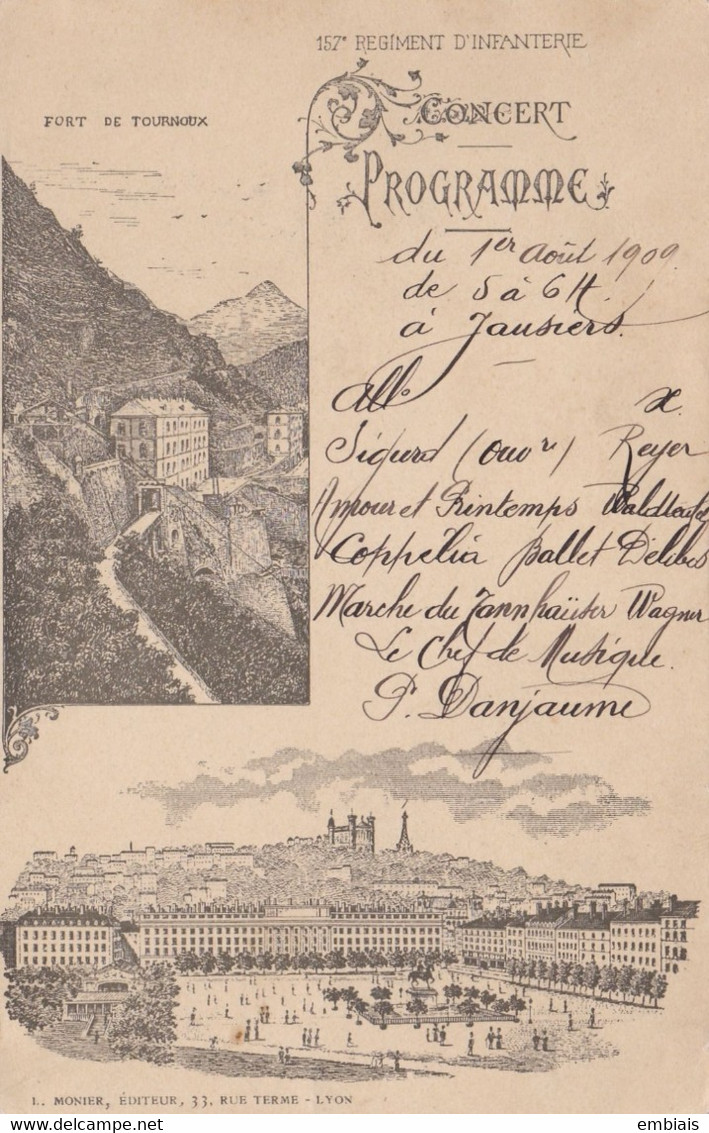 157e REGIMENT D'INFANTERIE
FORT DE TOURNOUX
CONCERT
PROGRAMME
du 1er Août 1909
de 5 à 6H.
à Jausiers.
Allo x.
Sigurd (Ouvre) Reyer
Amour et Printemps Waldteufel
Coppélia Ballet Délibes
Marche du Tannhaüser Wagner
Le Chef de Musique.
P. Danjaume
L. MONIER, ÉDITEUR, 33, RUE TERME - LYON
delcampe.net
embiais